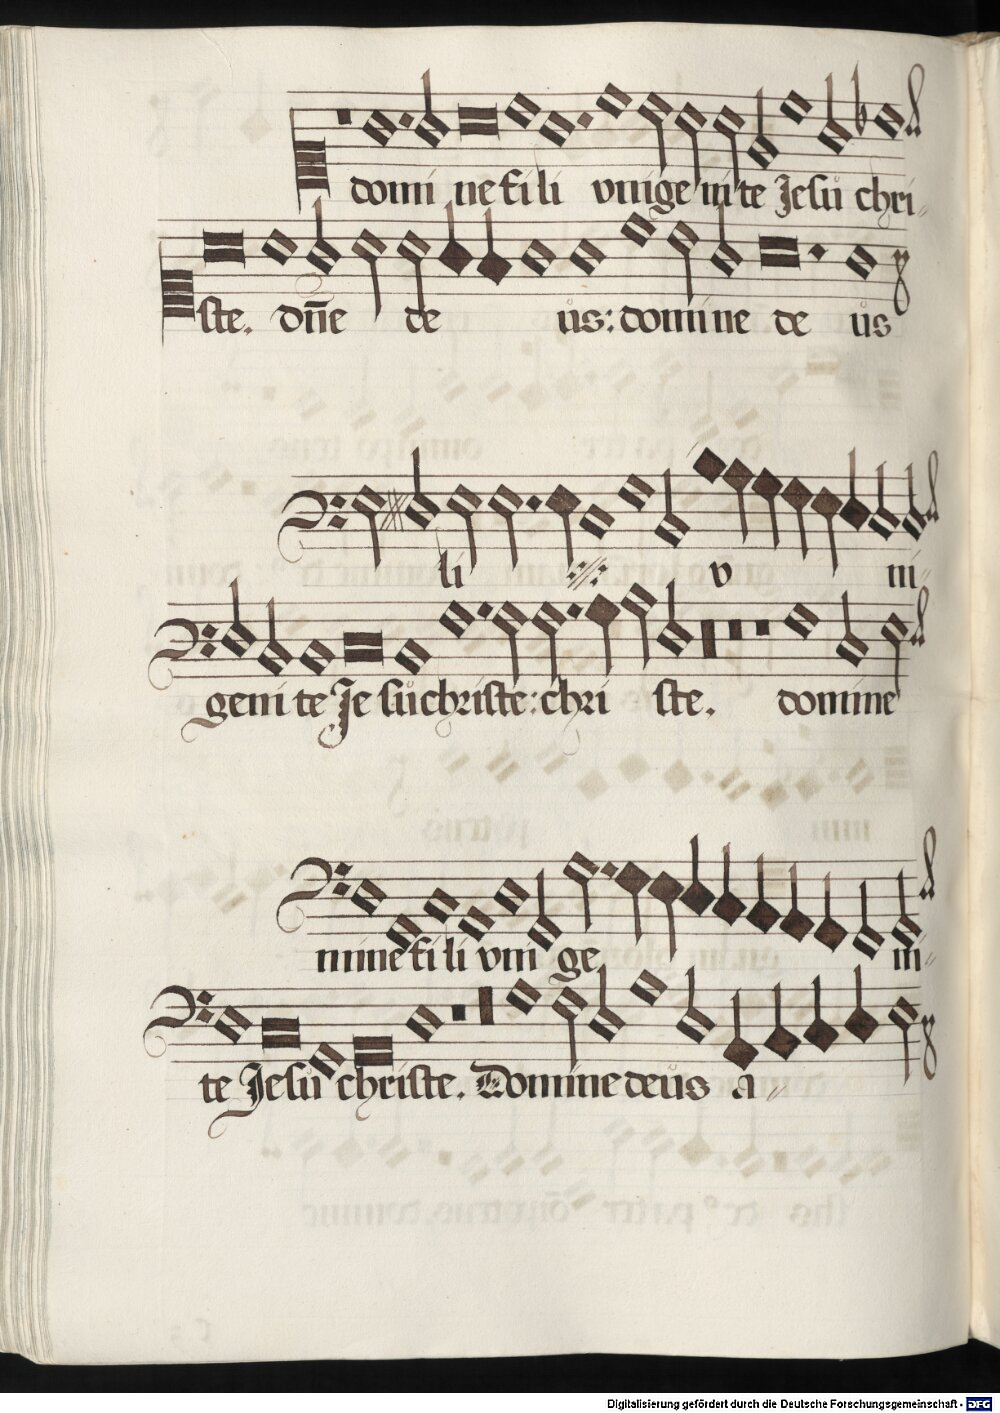 domi ne fi li vnige ni te Jesů chri-
ste. dn̄e de ůs: domine de ůs
li ·//· v ni-
geni te Je sů christe: chri ste. domine
mine fi li vni ge ni-
te Jesů christe. Domine deůs a-
Digitalisierung gefördert durch die Deutsche Forschungsgemeinschaft - DFG